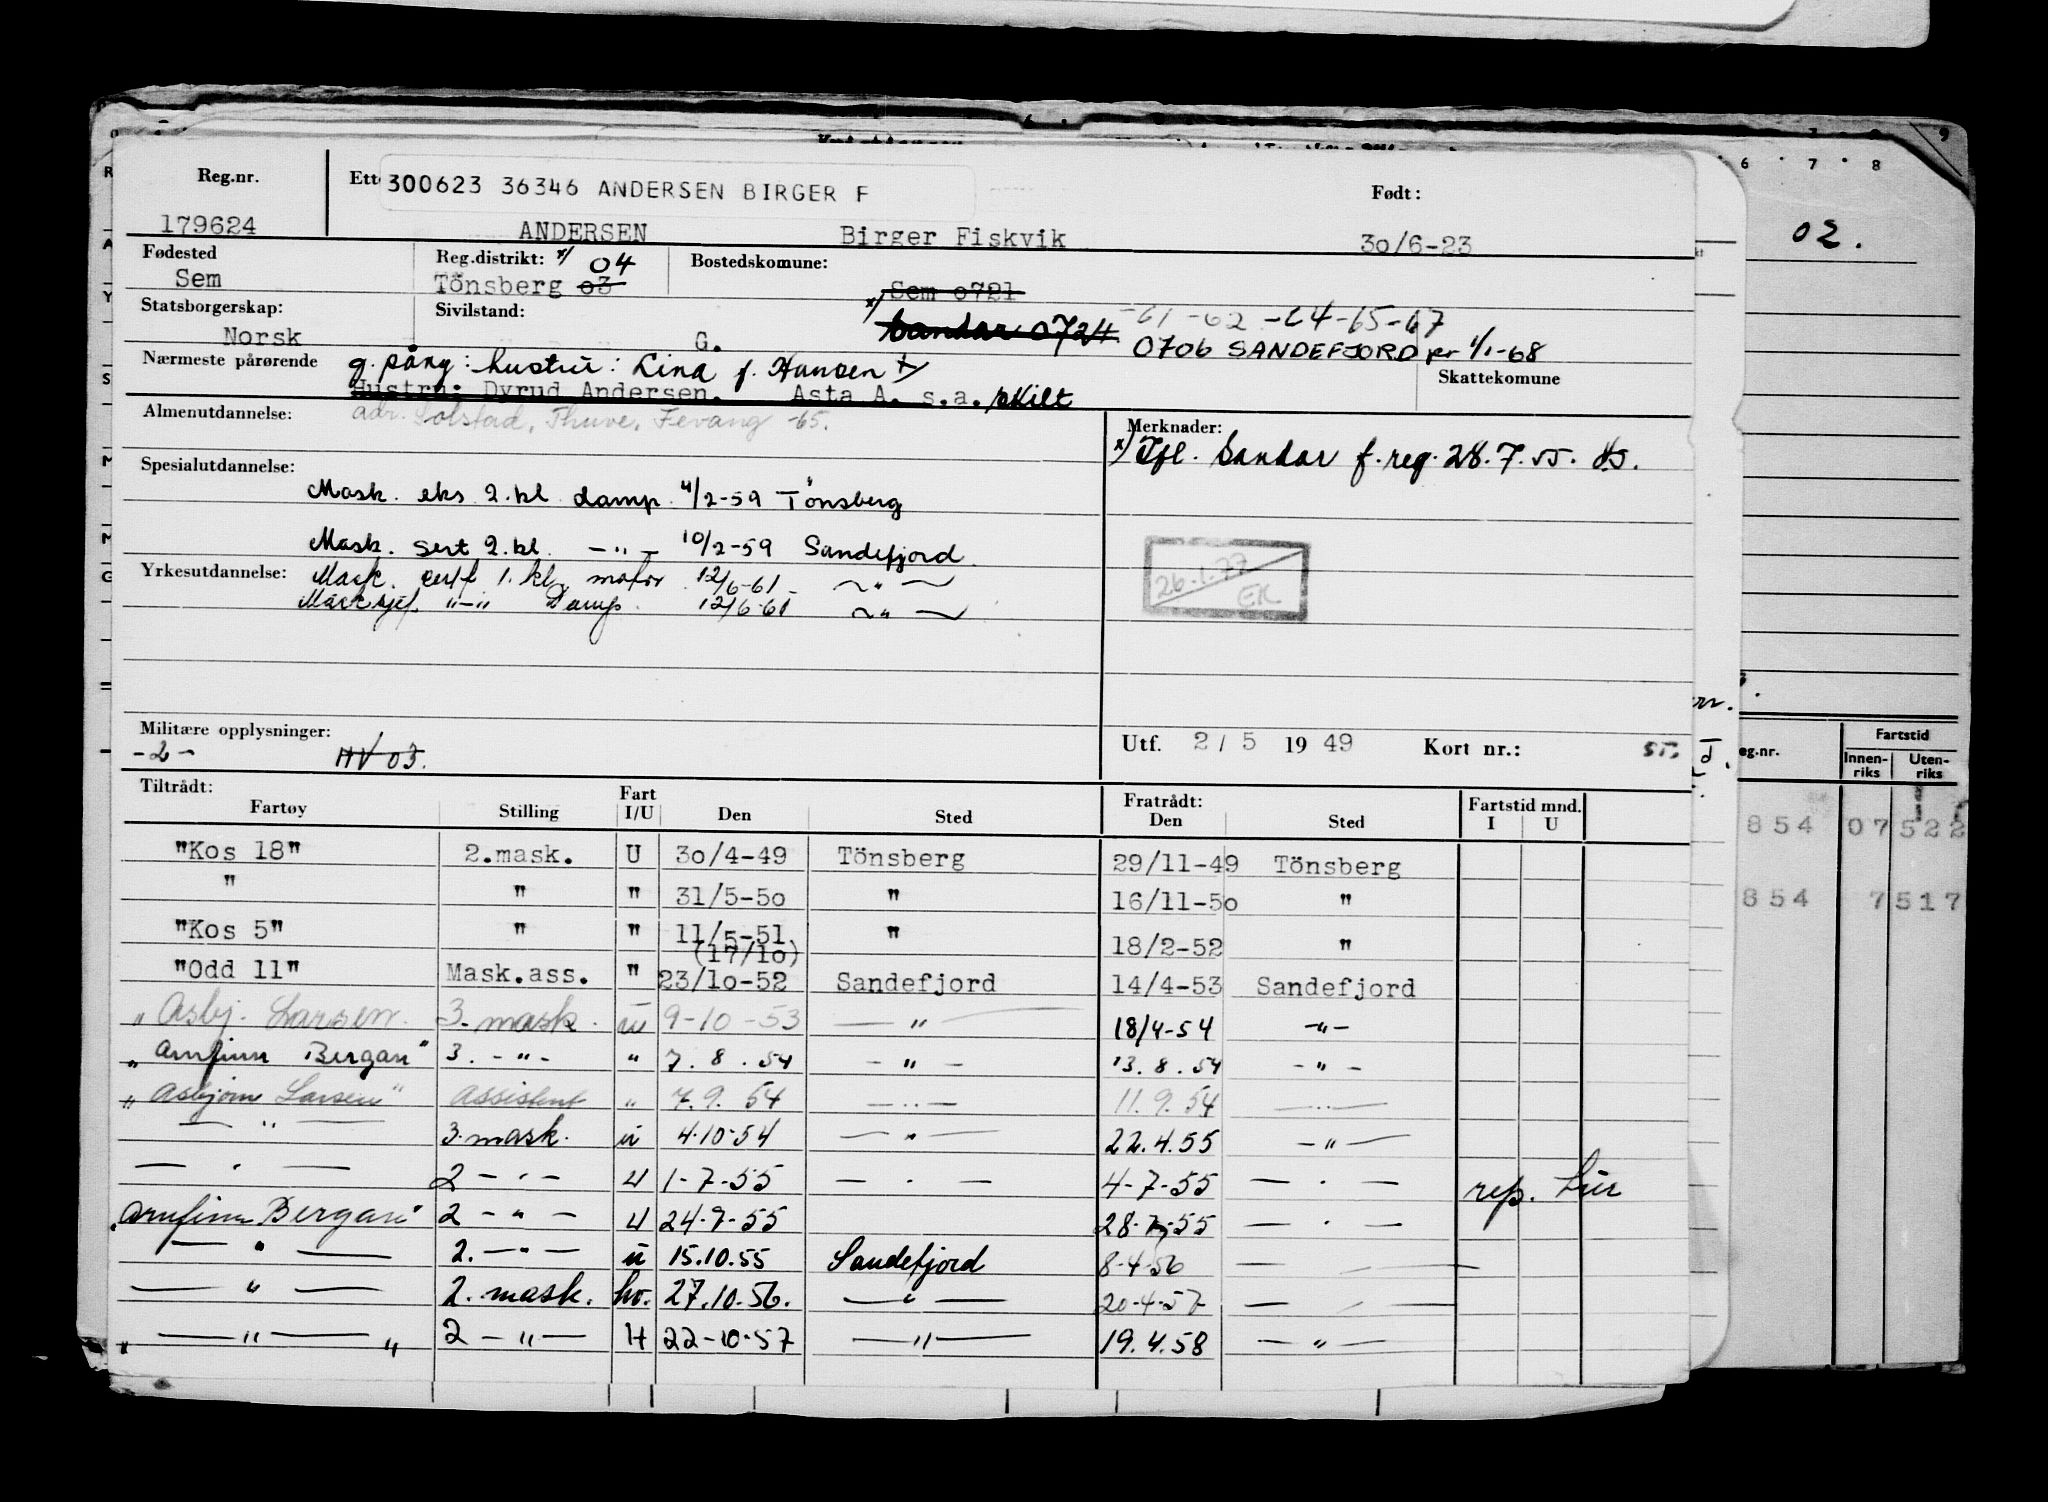 Reg.nr. Ett 300623 36346 ANDERSEN BIRGER F Født:
179624 ANDERSEN Birger Fiskvik 30/6-23
Fødested Reg.distrikt: x/ 04 Bostedskomune:
Sem Tönsberg 03 Sem 0721
Statsborgerskap: Sivilstand: x/ Sandar 0724 -61-62-64-65-67
Norsk G. 0706 SANDEFJORD pr 1/1-68
Nærmeste pårørende g. påny: hustru: Lina f. Hansen Skattekomune
Hustru: Dyrud Andersen. Asta A. s.a. skilt
Almenutdannelse: adr. Solstad, Thuve, Fevang -65. Merknader:
x/ Tfl. Sandar f. reg. 28.7.55.
Spesialutdannelse:
Mask. eks 2.kl damp. 4/2-59 Tönsberg
Mask. sert 2.kl. -"- 10/2-59 Sandefjord
Yrkesutdannelse: Mask. cert 1. kl motor 12/6-61 -"-
"-" Damp. 12/6-61 -"-
26.1.77
EK
Militære opplysninger:
-2- HV 03.
Utf. 2/5 1949 Kort nr.:
Tiltrådt: Fart Fratrådt: Fartstid mnd.
Fartøy Stilling I/U Den Sted Den Sted I U
"Kos 18" 2.mask. U 30/4-49 Tönsberg 29/11-49 Tönsberg
" " " 31/5-50 " 16/11-50 "
"Kos 5" " " 11/5-51 " 18/2-52 "
(17/10)
"Odd 11" Mask.ass. " 23/10-52 Sandefjord 14/4-53 Sandefjord
" Asbj. Larsen. 3. mask. u 9-10-53 -"- 18/4-54 -"-
"Arnfinn Bergan" 3. -"- " 7.8.54 -"- 13.8.54 -"-
"Asbjørn Larsen" Assistent " 7.9.54 -"- 11.9.54 -"-
-"- 3. mask. u 4.10-54 -"- 22.4.55 -"-
-"- 2 -"- U 1-7-55 -"- 4-7-55 -"- rep.
"Arnfinn Bergan" 2 -"- U 24-9-55 28-9-55 -"-
-"- 2. -"- u 15.10.55 Sandefjord 8-4-56 -"-
-"- 2. mask. hv. 27.10.56. -"- 20-4-57 -"-
" -"- " 2 -"- H 22-10-57 -"- 19.4.58 -"-
02.
6 7 8 9
eg.nr. Fartstid
Innen-riks Uten-riks
854 07 522
854 7 517